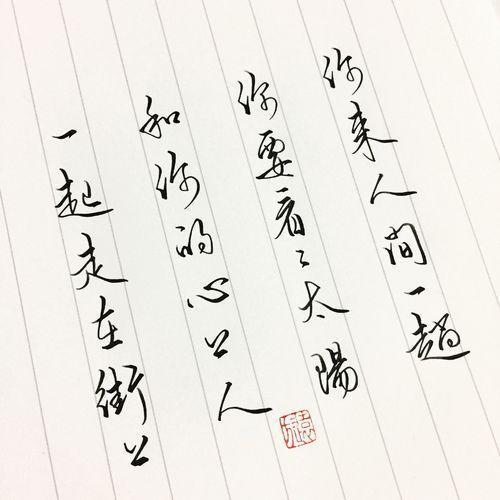 你来人间一趟
你要看看太陽
和你的心上人
一起走在街上